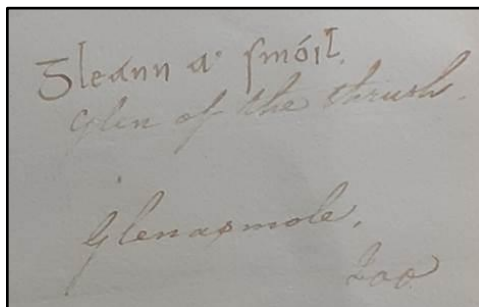 Gleann a' smóil.
Glen of the thrush.
Glenasmole.